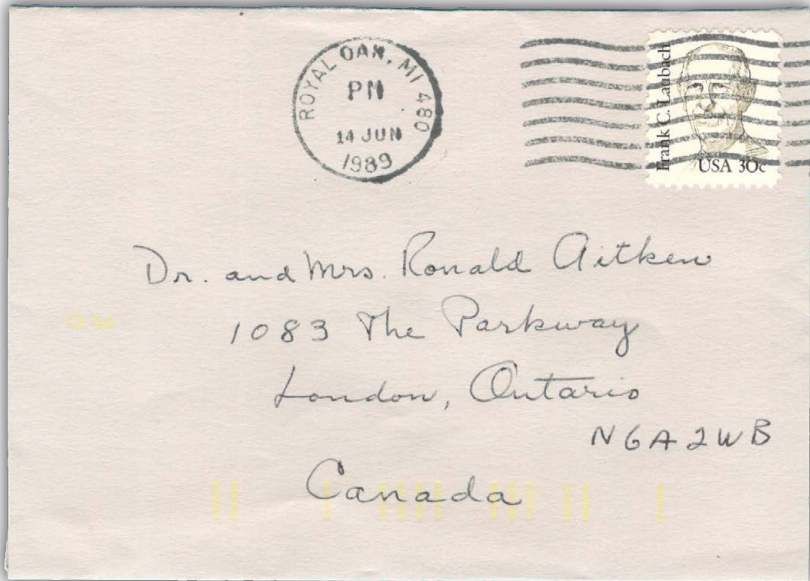 ROYAL OAK, MI 480
PM
14 JUN
1989
Frank C. Laubach
USA 30c
Dr. and Mrs. Ronald Aitken
1083 The Parkway
London, Ontario
N6A2WB
Canada